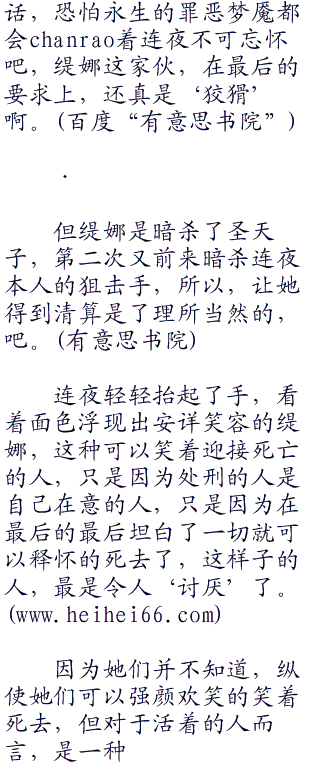 话，恐怕永生的罪恶梦魇都
会chanrao着连夜不可忘怀
吧，缇娜这家伙，在最后的
要求上，还真是‘狡猾’
啊。(百度“有意思书院”)
．
但缇娜是暗杀了圣天
子，第二次又前来暗杀连夜
本人的狙击手，所以，让她
得到清算是了理所当然的，
吧。(有意思书院)
连夜轻轻抬起了手，看
着面色浮现出安详笑容的缇
娜，这种可以笑着迎接死亡
的人，只是因为处刑的人是
自己在意的人，只是因为在
最后的最后坦白了一切就可
以释怀的死去了，这样子的
人，最是令人‘讨厌’了。
(www.heihei66.com)
因为她们并不知道，纵
使她们可以强颜欢笑的笑着
死去，但对于活着的人而
言，是一种